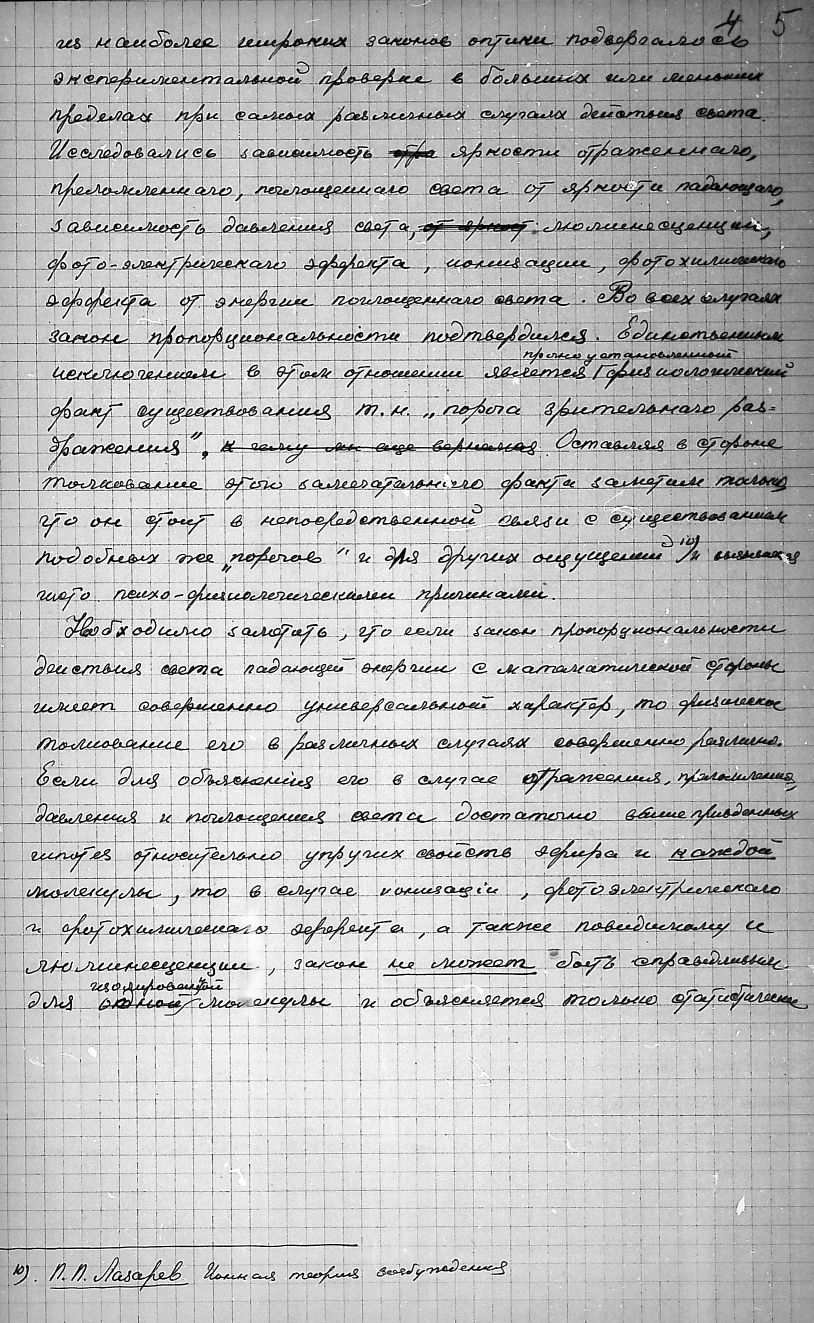 4 5
из наиболее широких законов оптики подвергалось
экспериментальной проверке в больших или меньших
пределах при самых различных случаях действия света.
Исследовались зависимость отра яркости отраженнаго,
преломленнаго, поглощеннаго света от яркости падающаго,
зависимость давления света, от яркост люминесценции,
фото-электрическаго эффекта, ионизации, фотохимическаго
эффекта от энергии поглощеннаго света. Во всех случаях
закон пропорциональности подтвердился. Единственным
прочно установленный
исключением в этом отношении является физиологический
факт существования т.н. „порога зрительнаго раз-
дражения", к чему мы еще вернемся Оставляя в стороне
толкование этого замечательнаго факта заметим только
что он стоит в непосредственной связи с существованием
подобных же „порогов" и для других ощущений 10) и
чисто психо-физиологическими причинами.
Необходимо заметить, что если закон пропорциональности
действия света падающей энергии с математической стороны
имеет совершенно универсальный характер, то физическое
толкование его в различных случаях совершенно различно.
Если для объяснения его в случае отражения, преломления,
давления и поглощения света достаточно вышеприведенных
гипотез относительно упругих свойств эфира и каждой
молекулы, то в случае ионизаціи, фотоэлектрическаго
и фотохимическаго эффекта, а также повидимому и
люминесценции, закон не может быть справедливым
изолированной
для одной молекулы и объясняется только статистически
10). П.П. Лазарев Ионная теория возбуждения